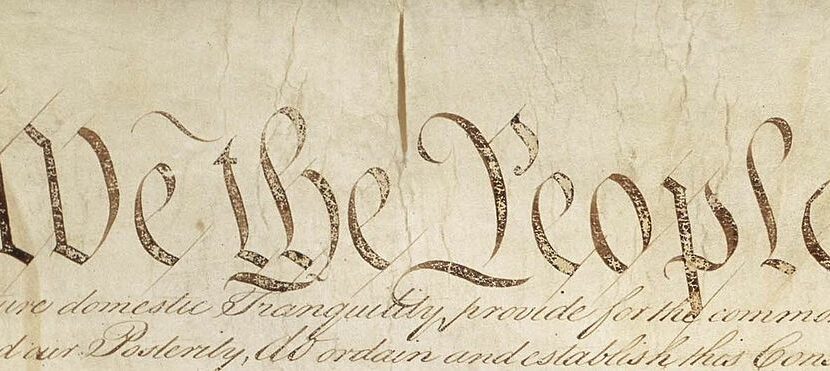 We the People
ure domestic Tranquility, provide for the commo
d our Posterity, do ordain and establish this Cons